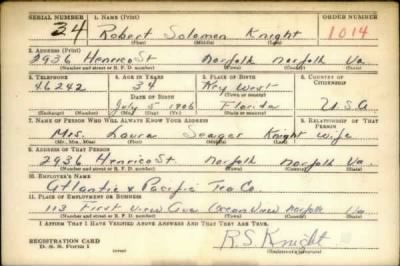 SERIAL NUMBER 1. NAME (Print) ORDER NUMBER
34 Robert Solomon Knight 1014
(First) (Middle) (Last)
2. ADDRESS (Print)
2936 Henrico St Norfolk Norfolk Va.
(Number and street or R. F. D. number) (Town) (County) (State)
3. TELEPHONE 4. AGE IN YEARS 5. PLACE OF BIRTH 6. COUNTRY OF CITIZENSHIP
46242 34 Key West
DATE OF BIRTH (Town or county)
July 5 1906 Florida U.S.A
(Exchange) (Number) (Mo.) (Day) (Yr.) (State or country)
7. NAME OF PERSON WHO WILL ALWAYS KNOW YOUR ADDRESS 8. RELATIONSHIP OF THAT PERSON
Mrs. Laura Knight wife
(Mr., Mrs., Miss) (First) (Middle) (Last)
9. ADDRESS OF THAT PERSON
2936 Henrico St Norfolk Norfolk Va.
(Number and street or R. F. D. number) (Town) (County) (State)
10. EMPLOYER'S NAME
Atlantic & Pacific Tea Co.
11. PLACE OF EMPLOYMENT OR BUSINESS
113 First View Ave Ocean View Norfolk Va
(Number and street or R. F. D. number) (Town) (County) (State)
I AFFIRM THAT I HAVE VERIFIED ABOVE ANSWERS AND THAT THEY ARE TRUE.
REGISTRATION CARD
D. S. S. Form 1
R.S. Knight
(Registrant's signature)